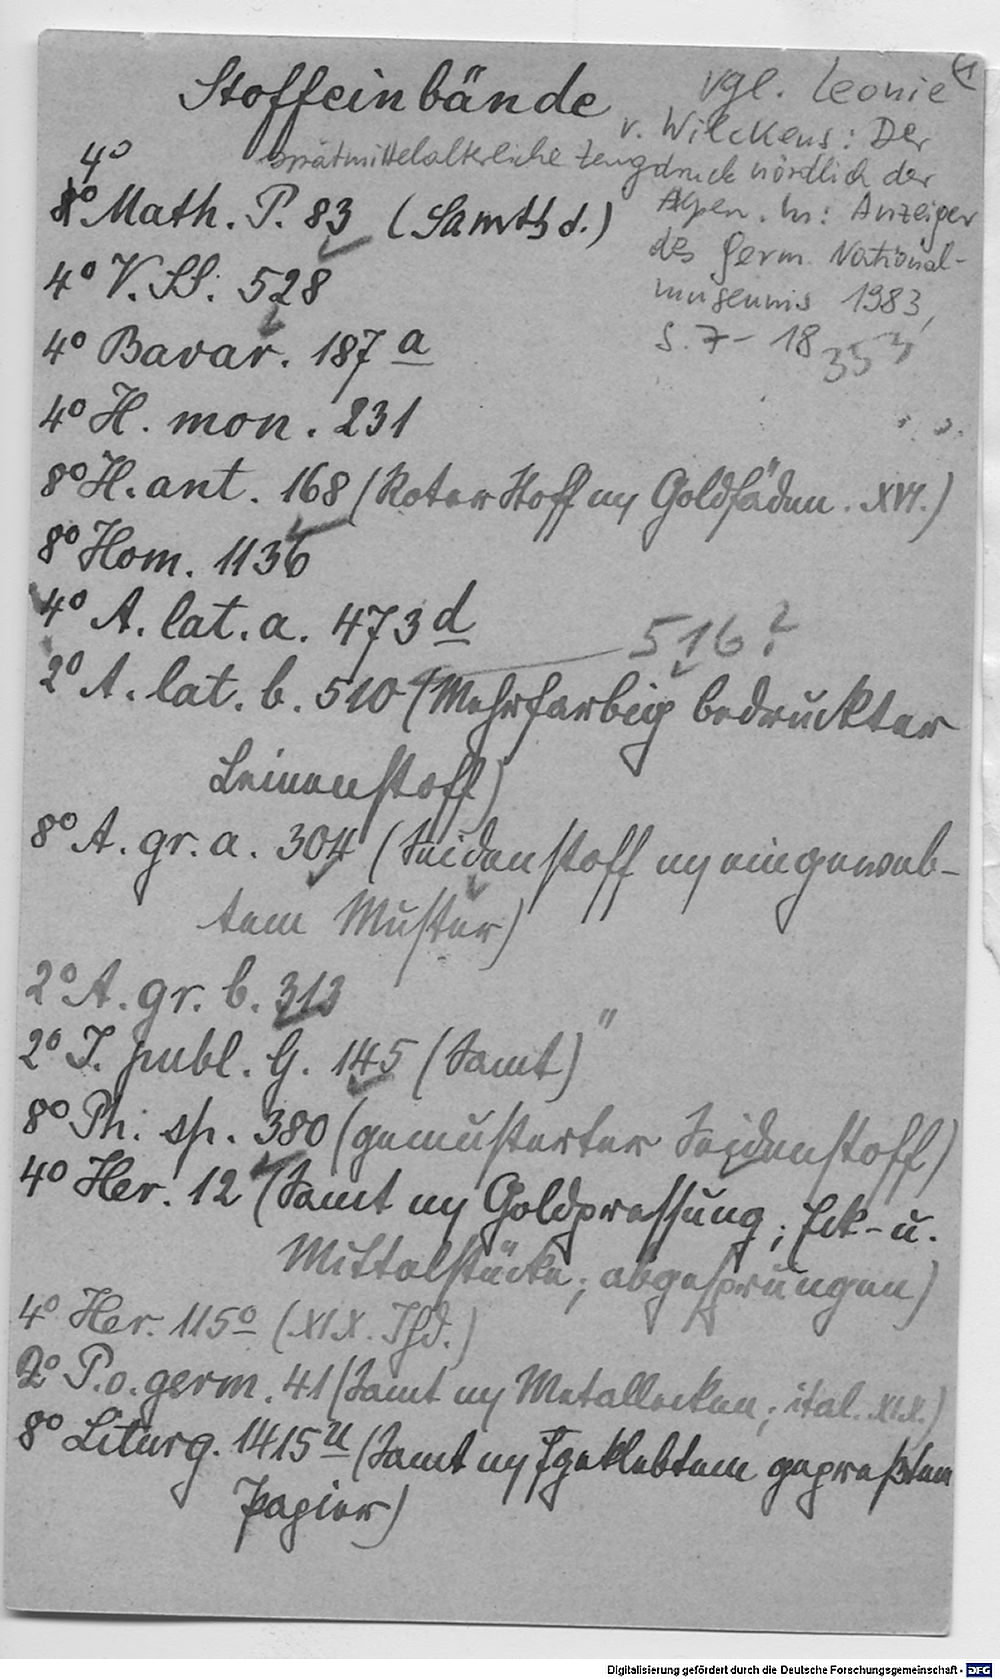 1
Stoffeinbände
vgl. Leonie
v. Wilckens: Der
spätmittelalterliche Zeugdruck nördlich der
Alpen. In: Anzeiger
des Germ. National-
museums 1983,
S. 7-18
4°
8° Math. P. 83 (Samtbd.)
4° V. SS. 528
4° Bavar. 187 a
4° H. mon. 231
8° H. ant. 168 (Roter Stoff m Goldfäden. XVI.)
8° Hom. 1136
4° A. lat. a. 473 d
516?
2° A. lat. b. 510 (Mehrfarbig bedruckter
Leinenstoff)
8° A. gr. a. 304 (Seidenstoff m eingeweb-
tem Muster)
2° A. gr. b. 313
2° J. publ. G. 145 (Samt)
8° Ph. sp. 380 (gemusterter Seidenstoff)
4° Her. 12 (Samt m Goldpressung; Eck- u.
Mittelstücke; abgesprungen)
4° Her. 115° (XIX. Jhd.)
2° P. o. germ. 41 (Samt m Metallecken; ital. XIX.)
8° Liturg. 1415 u (Samt m geklebtem gepreßtem
Papier)
Digitalisierung gefördert durch die Deutsche Forschungsgemeinschaft - DFG